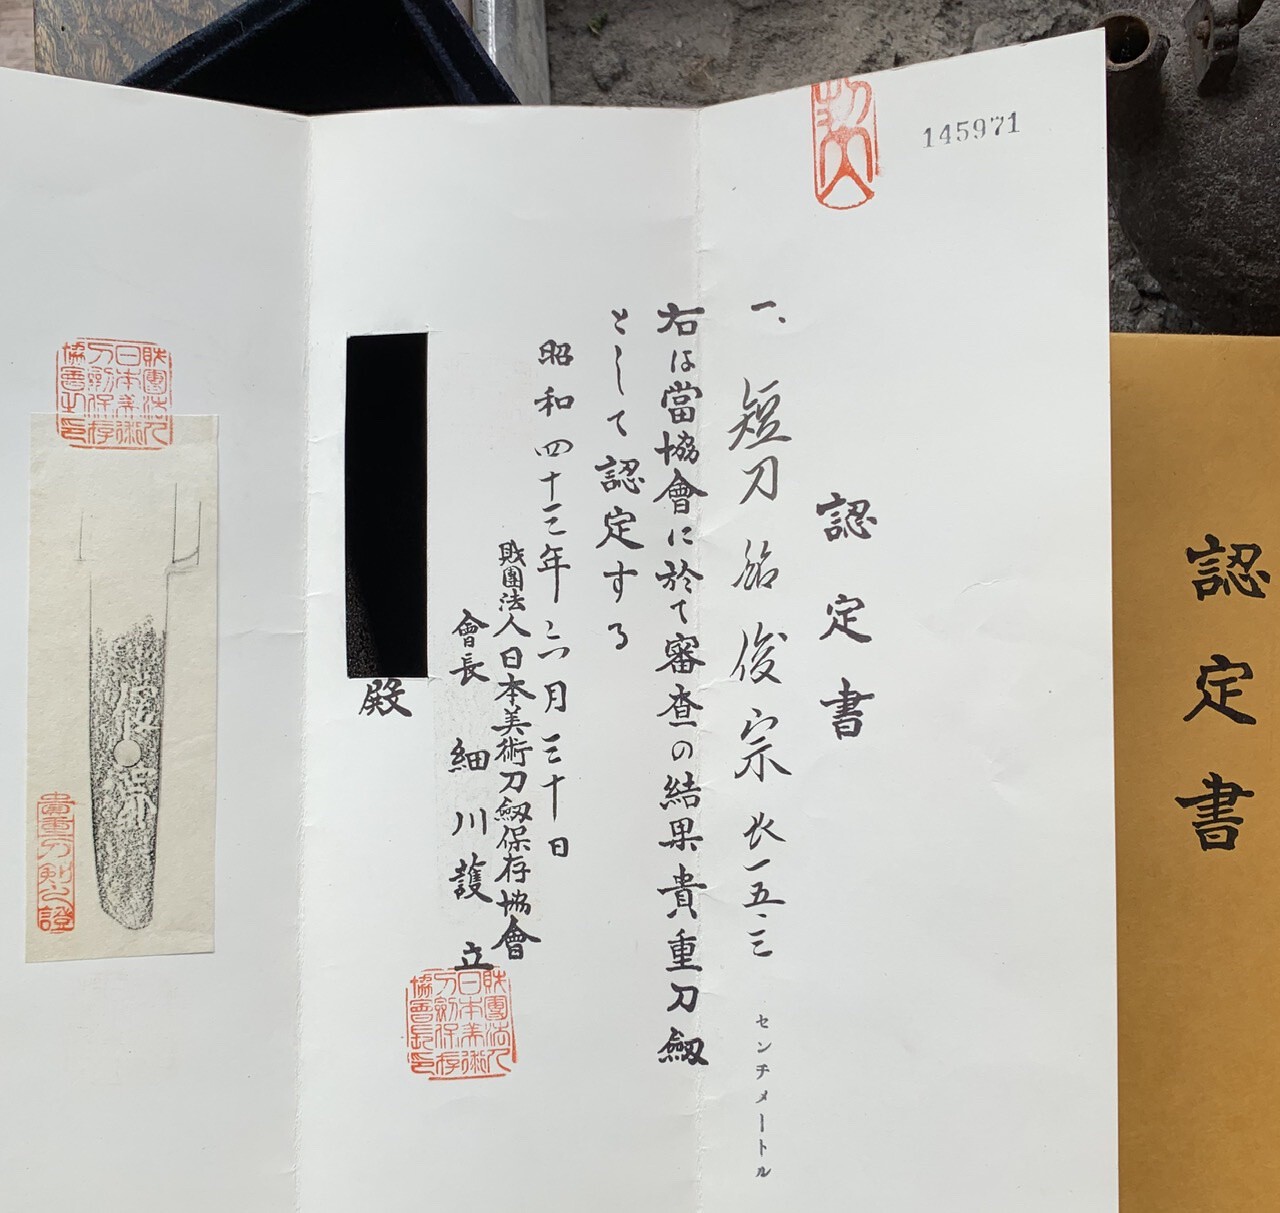 145971
認定書
一、短刀 銘 俊宗 長一五.三 センチメートル
右は當協會に於て審査の結果貴重刀劔
として認定する
昭和四十三年 六月三十日
財團法人日本美術刀劔保存協會
會長 細川護立
殿
財團法人
日本美術
刀劍保存
協會長印
財團法人
日本美術
刀劍保存
協會長印
俊宗
貴重刀剣之證
認定書